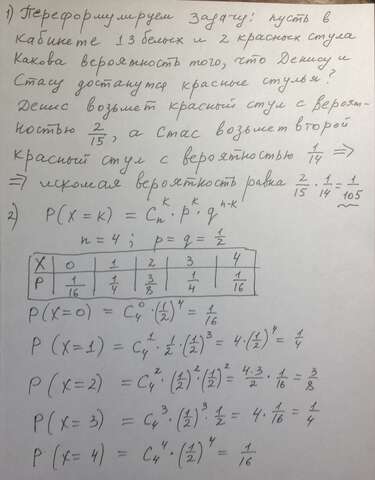 1) Переформулируем задачу: пусть в
кабинете 13 белых и 2 красных стула
Какова вероятность того, что Денису и
Стасу достанутся красные стулья?
Денис возьмет красный стул с вероят-
ностью 2/15, а Стас возьмет второй
красный стул с вероятностью 1/14 =>
=> искомая вероятность равна 2/15 · 1/14 = 1/105
2) P(X=k) = C_n^k · p^k · q^(n-k)
n = 4 ; p = q = 1/2
X 0 1 2 3 4
P 1/16 1/4 3/8 1/4 1/16
P(X=0) = C_4^0 · (1/2)^4 = 1/16
P(X=1) = C_4^1 · 1/2 · (1/2)^3 = 4 · (1/2)^4 = 1/4
P(X=2) = C_4^2 · (1/2)^2 · (1/2)^2 = 4·3/2 · 1/16 = 3/8
P(X=3) = C_4^3 · (1/2)^3 · 1/2 = 4 · 1/16 = 1/4
P(X=4) = C_4^4 · (1/2)^4 = 1/16